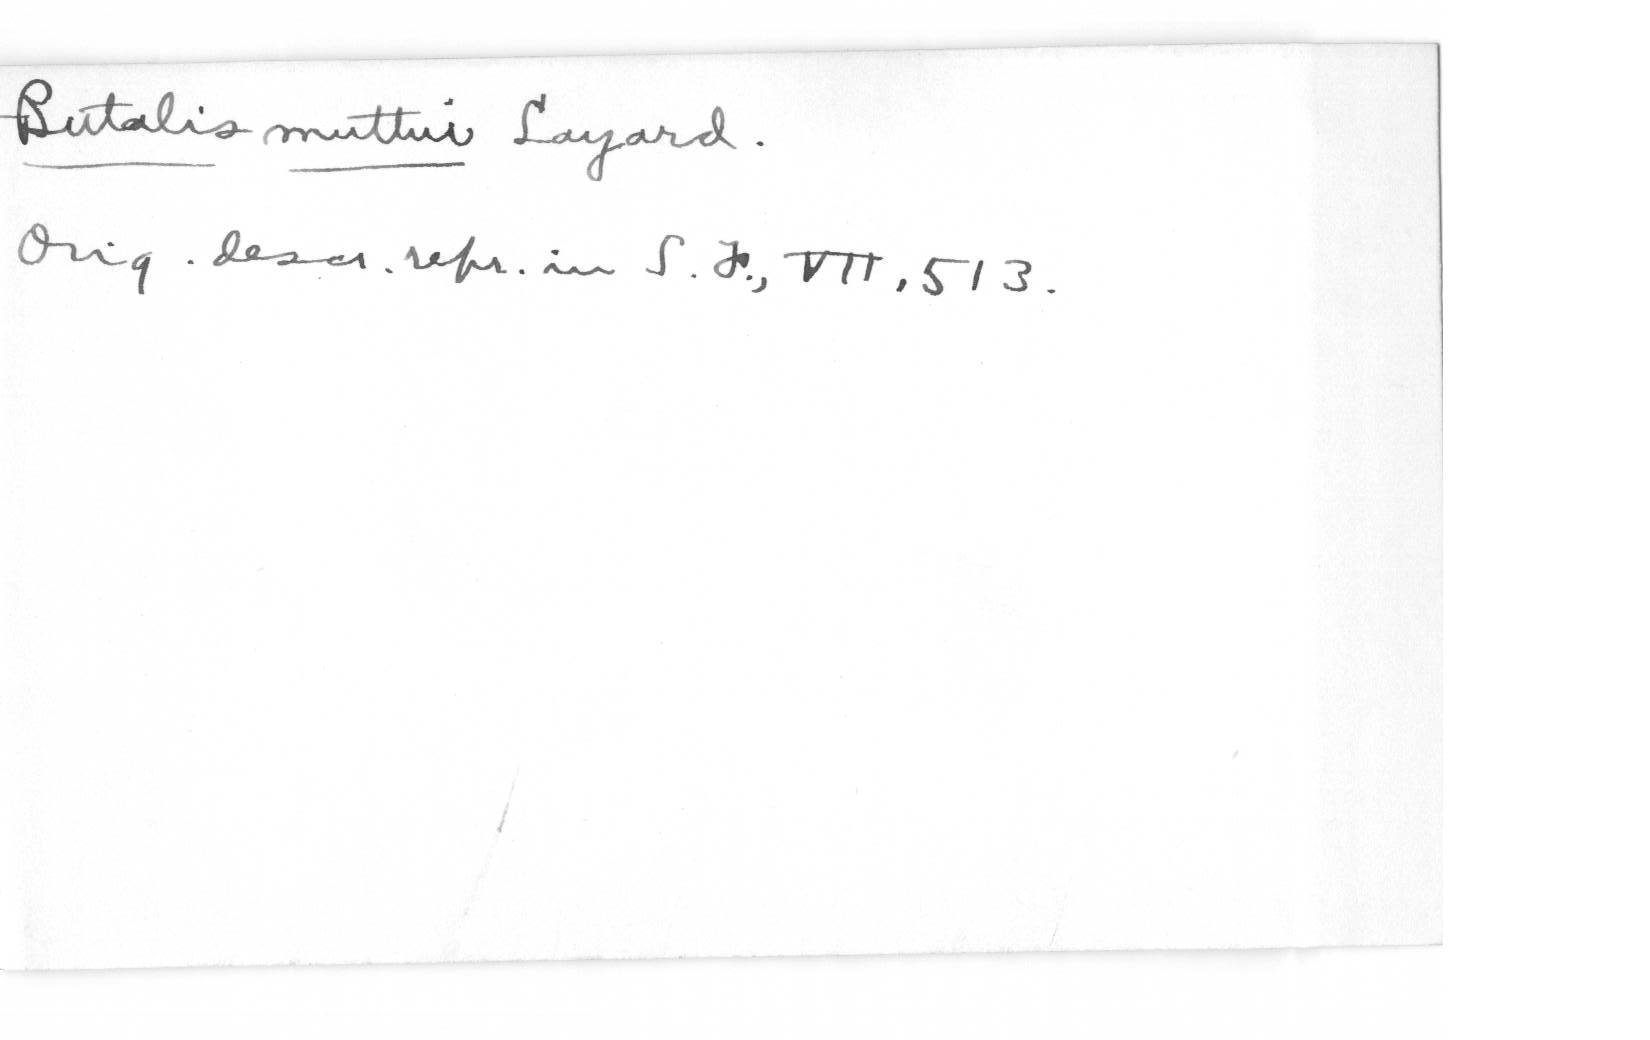 Butalis muttui Layard.
Orig. descr. repr. in S. F., VII, 513.